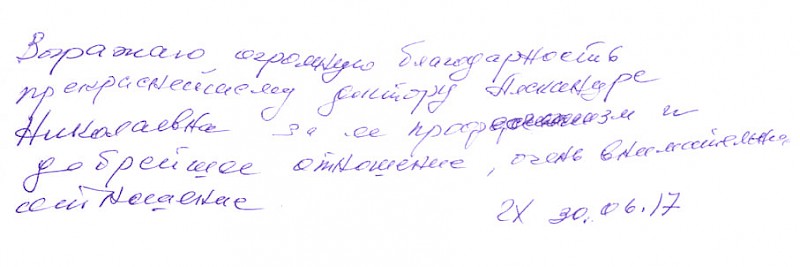 Выражаю огромную благодарность
прекраснейшему доктору
Николаевне за ее профессионализм и
добрейшее отношение, очень внимательное
отношение
30.06.17